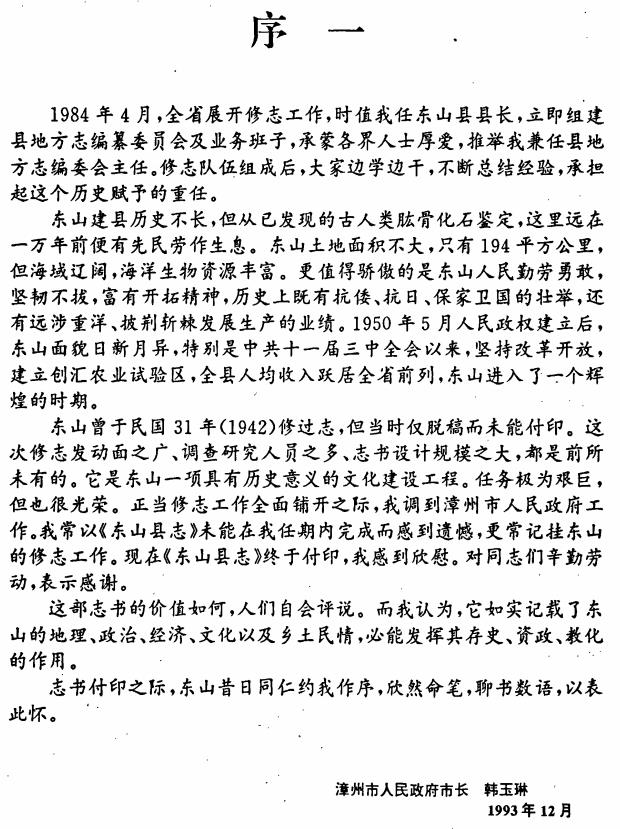 序 一
1984 年 4 月，全省展开修志工作，时值我任东山县县长，立即组建
县地方志编纂委员会及业务班子，承蒙各界人士厚爱，推举我兼任县地
方志编委会主任。修志队伍组成后，大家边学边干，不断总结经验，承担
起这个历史赋予的重任。
东山建县历史不长，但从已发现的古人类肱骨化石鉴定，这里远在
一万年前便有先民劳作生息。东山土地面积不大，只有 194 平方公里，
但海域辽阔，海洋生物资源丰富。更值得骄傲的是东山人民勤劳勇敢，
坚韧不拔，富有开拓精神，历史上既有抗倭、抗日、保家卫国的壮举，还
有远涉重洋、披荆斩棘发展生产的业绩。1950 年 5 月人民政权建立后，
东山面貌日新月异，特别是中共十一届三中全会以来，坚持改革开放，
建立创汇农业试验区，全县人均收入跃居全省前列，东山进入了一个辉
煌的时期。
东山曾于民国 31 年(1942)修过志，但当时仅脱稿而未能付印。这
次修志发动面之广、调查研究人员之多、志书设计规模之大，都是前所
未有的。它是东山一项具有历史意义的文化建设工程。任务极为艰巨，
但也很光荣。正当修志工作全面铺开之际，我调到漳州市人民政府工
作。我常以《东山县志》未能在我任期内完成而感到遗憾，更常记挂东山
的修志工作。现在《东山县志》终于付印，我感到欣慰。对同志们辛勤劳
动，表示感谢。
这部志书的价值如何，人们自会评说。而我认为，它如实记载了东
山的地理、政治、经济、文化以及乡土民情，必能发挥其存史、资政、教化
的作用。
志书付印之际，东山昔日同仁约我作序，欣然命笔，聊书数语，以表
此怀。
漳州市人民政府市长 韩玉琳
1993 年 12 月